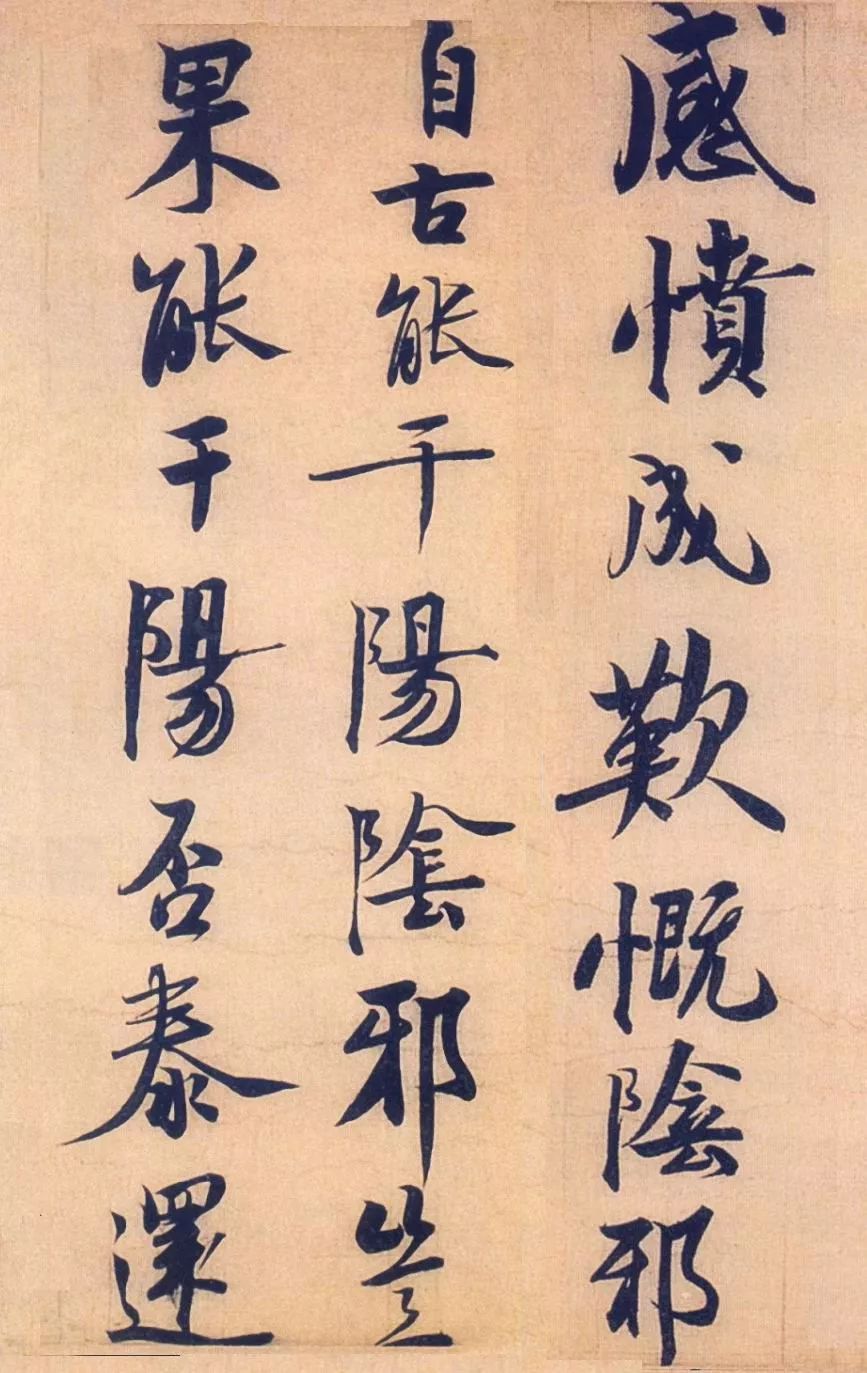 感憤成歎慨陰邪
自古能干陽陰邪豈
果能干陽否泰還